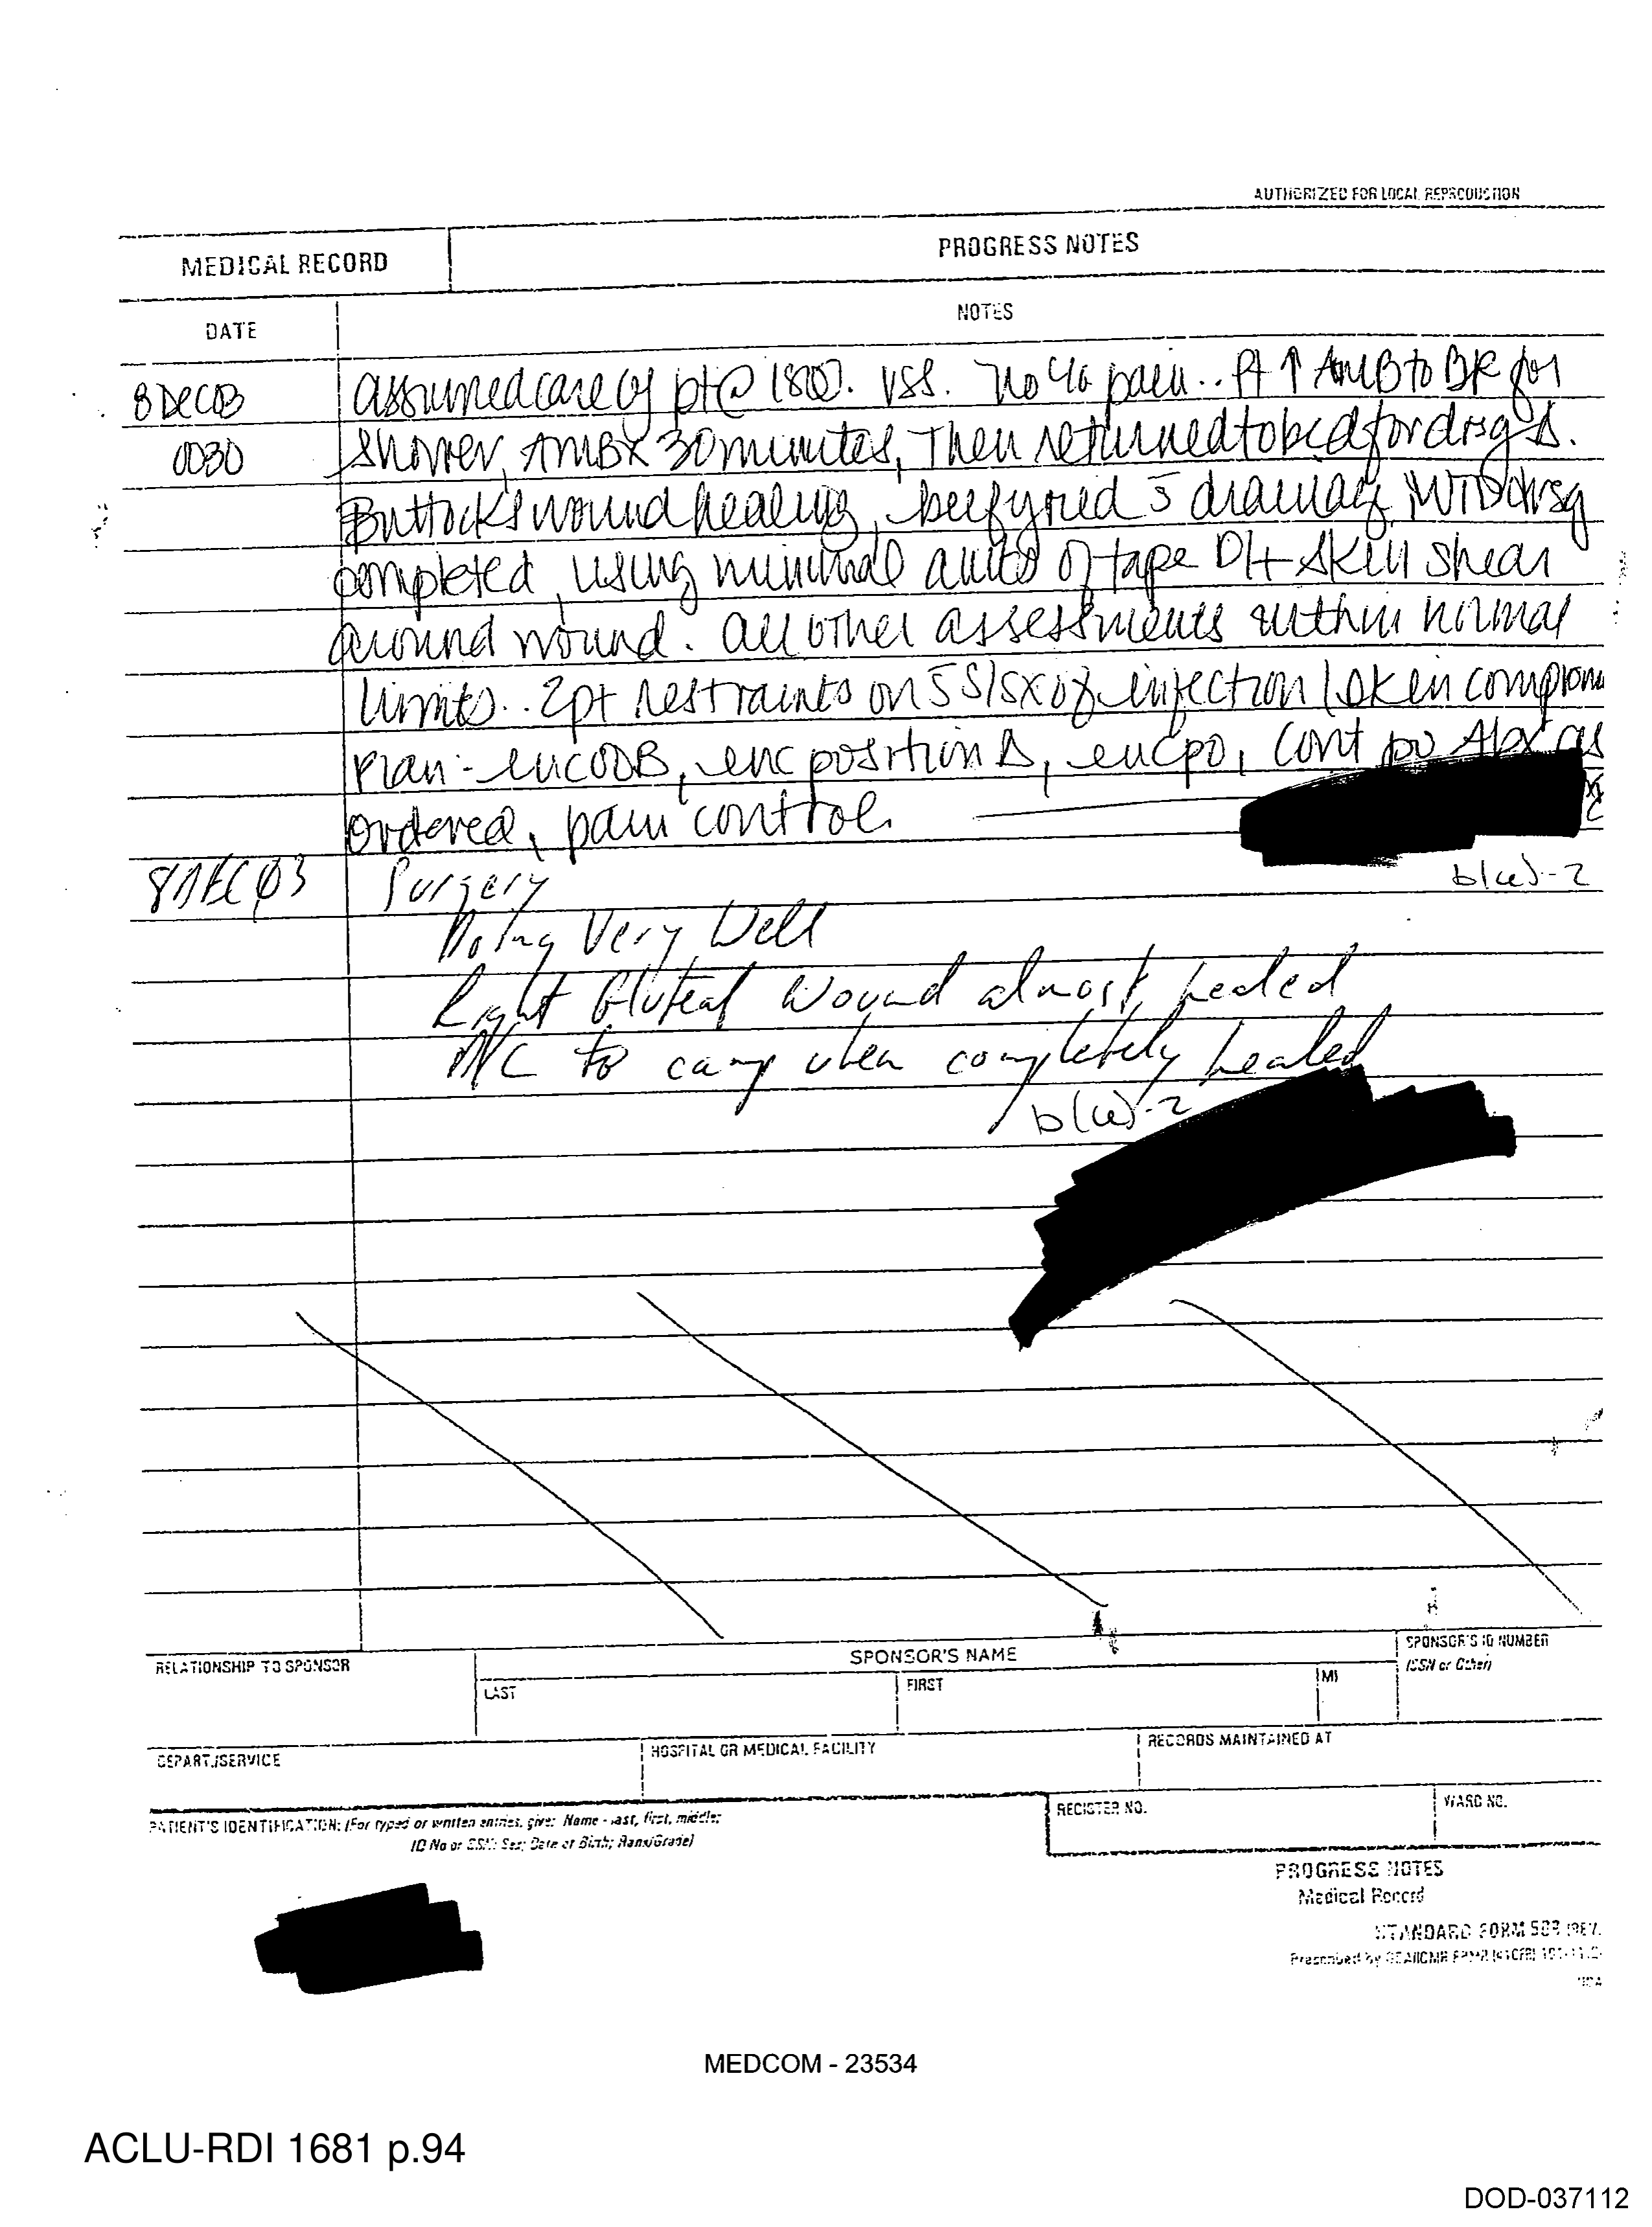 AUTHORIZED FOR LOCAL REPRODUCTION
MEDICAL RECORD
PROGRESS NOTES
DATE
NOTES
8 DEC 03 assumed care of pt @ 1800. VSS. No c/o pain.. Pt ↑ AMB to BR for
0030 shower, AMB x 30 minutes, Then returned to bed for drsg Δ.
Buttocks wound healing, beefy red s̄ drainage, WTD drsg
completed, using minimal amts of tape D/t skin shear
around wound. All other assessments within normal
limits.. 2pt restraints on s̄ s/sx of infection / skin comprom
Plan - enc CDB, enc position Δ, enc po, cont po Abx as
ordered, pain control.
b(6)-2
8 DEC 03 Surgery
Doing Very Well
Right Gluteal Wound almost healed
D/C to camp when completely healed
b(6)-2
RELATIONSHIP TO SPONSOR
SPONSOR'S NAME
SPONSOR'S ID NUMBER
(SSN or Other)
LAST
FIRST
MI
DEPART./SERVICE
HOSPITAL OR MEDICAL FACILITY
RECORDS MAINTAINED AT
PATIENT'S IDENTIFICATION: (For typed or written entries, give: Name - last, first, middle;
ID No or SSN; Sex; Date of Birth; Rank/Grade)
REGISTER NO.
WARD NO.
PROGRESS NOTES
Medical Record
STANDARD FORM 509 (REV.
Prescribed by
MEDCOM - 23534
ACLU-RDI 1681 p.94
DOD-037112